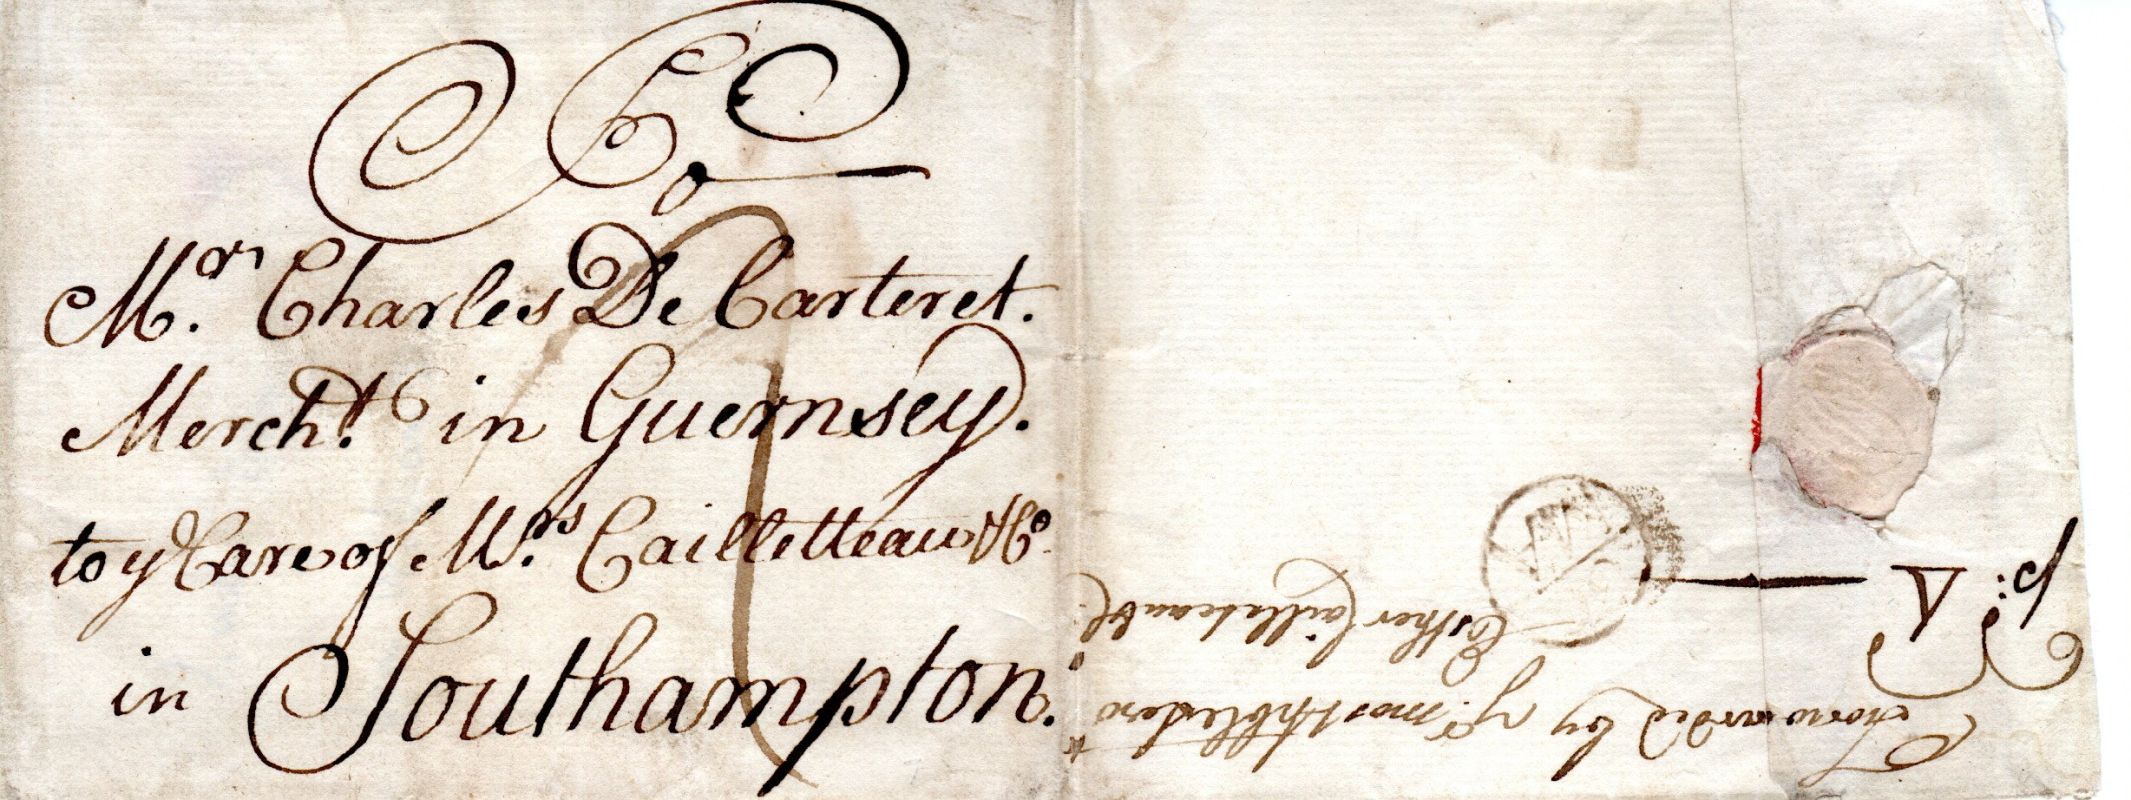 To
Mr. Charles De Carteret.
Mercht. in Guernsey.
to ye Care of Mrs. Cailletteau & Co
in Southampton.
Forwarded by yr. most
Esther Cailleteau & C